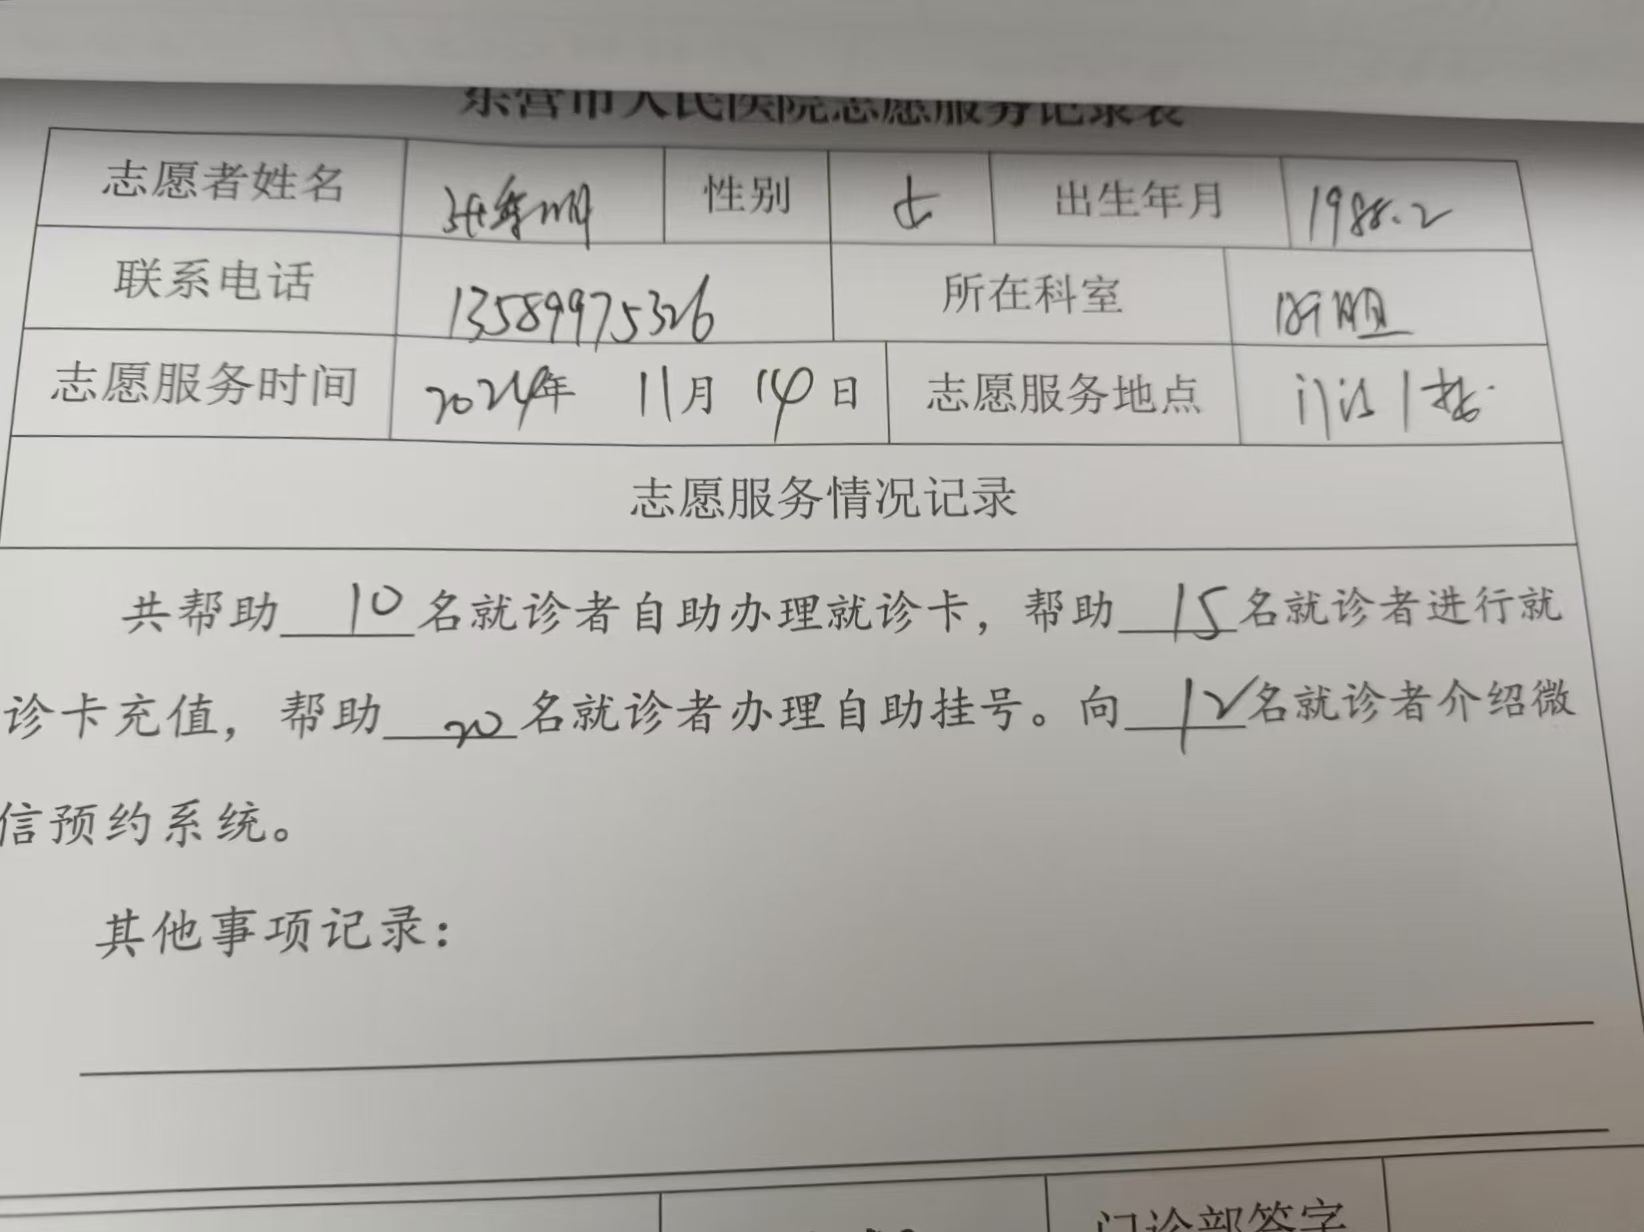 东营市人民医院志愿服务记录表
志愿者姓名 张 明 性别 女 出生年月 1988.2
联系电话 13589975326 所在科室 肝胆
志愿服务时间 2024年 11月 14日 志愿服务地点 门诊1楼
志愿服务情况记录
共帮助 10 名就诊者自助办理就诊卡，帮助 15 名就诊者进行就
诊卡充值，帮助 20 名就诊者办理自助挂号。向 12 名就诊者介绍微
信预约系统。
其他事项记录：
门诊部签字